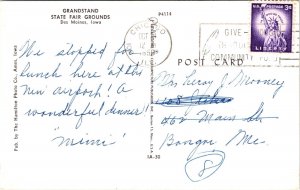 GRANDSTAND
STATE FAIR GROUNDS
Des Moines, Iowa
94574
We stopped for
lunch here at the
new airport! A
wonderful dinner
"Mimi"
Pub. by The Hamilton Photo Co., Ames, Iowa
POST CARD
GIVE
COMMUNITY
U.S. POSTAGE 3¢
LIBERTY
Mrs Leroy J Mooney
660 Main St
Bangor, Me.
8
1A-30